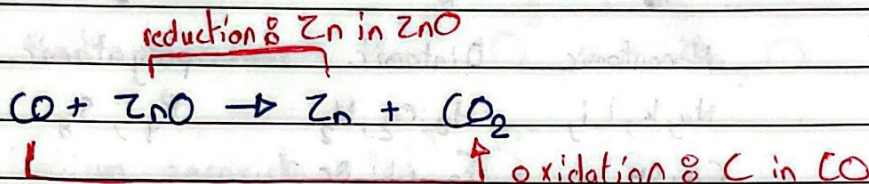 reduction: Zn in ZnO
CO + ZnO → Zn + CO₂
oxidation: C in CO